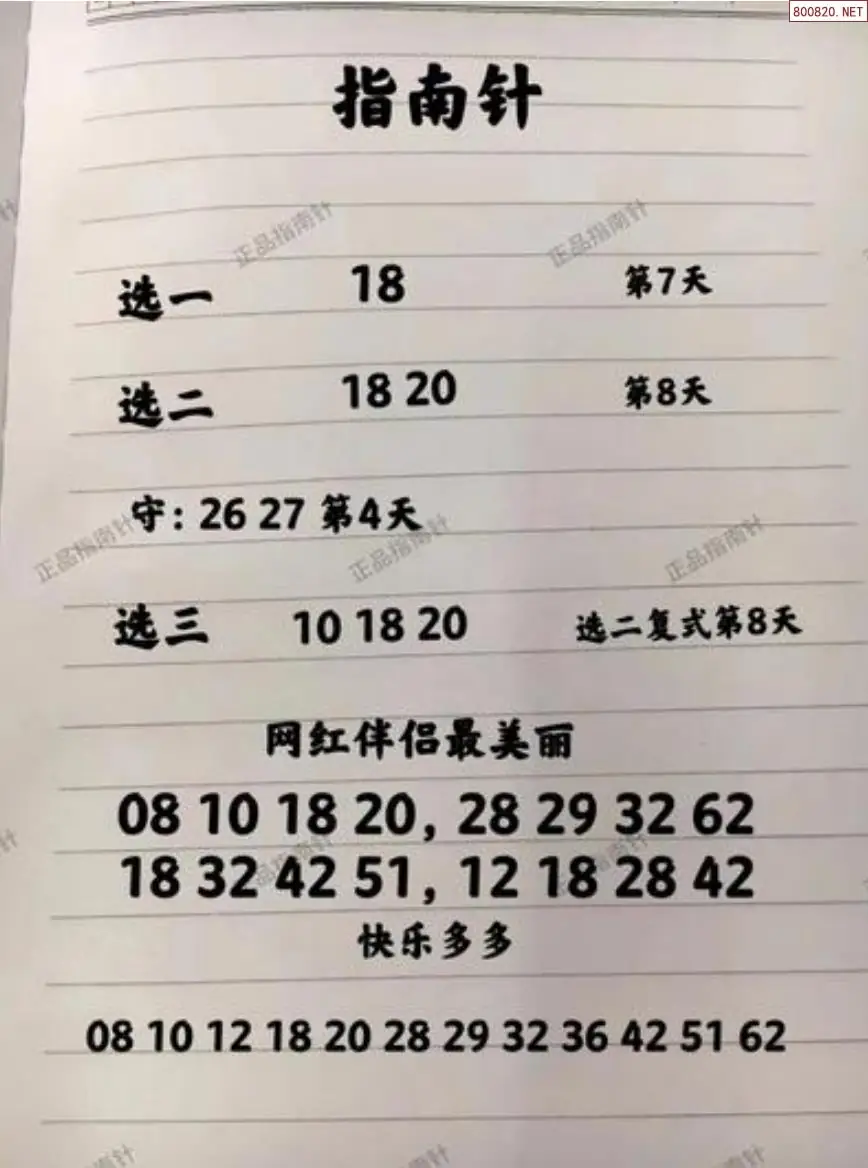 800820.NET
指南针
正品指南针 正品指南针
选一 18 第7天
选二 18 20 第8天
守：26 27 第4天
正品指南针 正品指南针 正品指南针
选三 10 18 20 选二复式第8天
网红伴侣最美丽
08 10 18 20，28 29 32 62
18 32 42 51，12 18 28 42
快乐多多
08 10 12 18 20 28 29 32 36 42 51 62